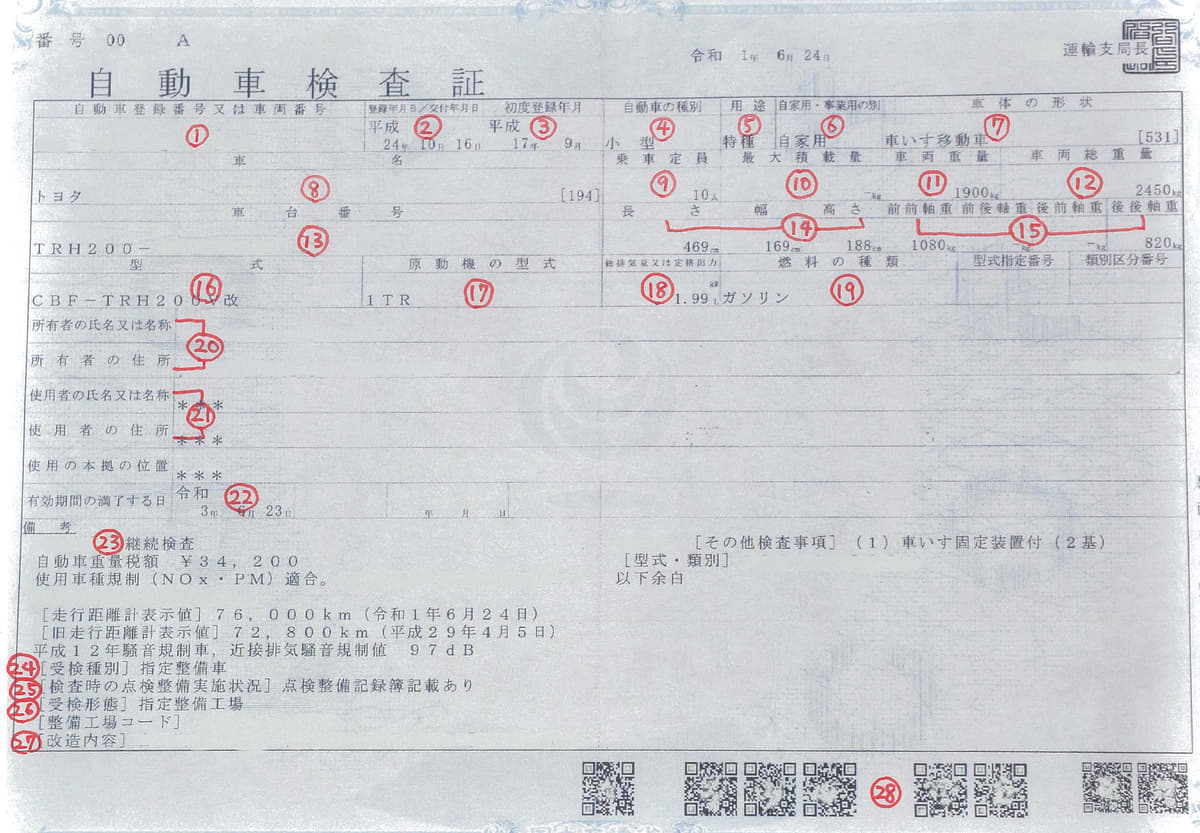 番号 00 A
令和 1年 6月 24日
運輸支局長
自動車検査証
自動車登録番号又は車両番号 登録年月日/交付年月日 初度登録年月 自動車の種別 用途 自家用・事業用の別 車体の形状
① 平成 ② 平成 ③ ④ ⑤ ⑥ ⑦
24年 10月 16日 17年 9月 小型 特種 自家用 車いす移動車 [531]
車名 乗車定員 最大積載量 車両重量 車両総重量
トヨタ ⑧ [194] ⑨ 10人 ⑩ -kg ⑪ 1900kg ⑫ 2450kg
車台番号 長さ 幅 高さ 前前軸重 前後軸重 後前軸重 後後軸重
TRH200- ⑬ ⑭ 469cm 169cm 188cm ⑮ 1080kg -kg -kg 820kg
型式 原動機の型式 総排気量又は定格出力 燃料の種類 型式指定番号 類別区分番号
CBF-TRH200V改 ⑯ 1TR ⑰ ⑱ kW 1.99L ガソリン ⑲
所有者の氏名又は名称
⑳
所有者の住所
使用者の氏名又は名称 ***
㉑
使用者の住所 ***
使用の本拠の位置 ***
有効期間の満了する日 令和 ㉒
3年 6月 23日 年 月 日
備考
㉓ 継続検査
自動車重量税額 ¥34,200
使用車種規制(NOx・PM)適合。
[走行距離計表示値]76,000km(令和1年6月24日)
[旧走行距離計表示値]72,800km(平成29年4月5日)
平成12年騒音規制車,近接排気騒音規制値 97dB
㉔ [受検種別]指定整備車
㉕ [検査時の点検整備実施状況]点検整備記録簿記載あり
㉖ [受検形態]指定整備工場
[整備工場コード]
㉗ [改造内容]
[その他検査事項](1)車いす固定装置付(2基)
[型式・類別]
以下余白
㉘